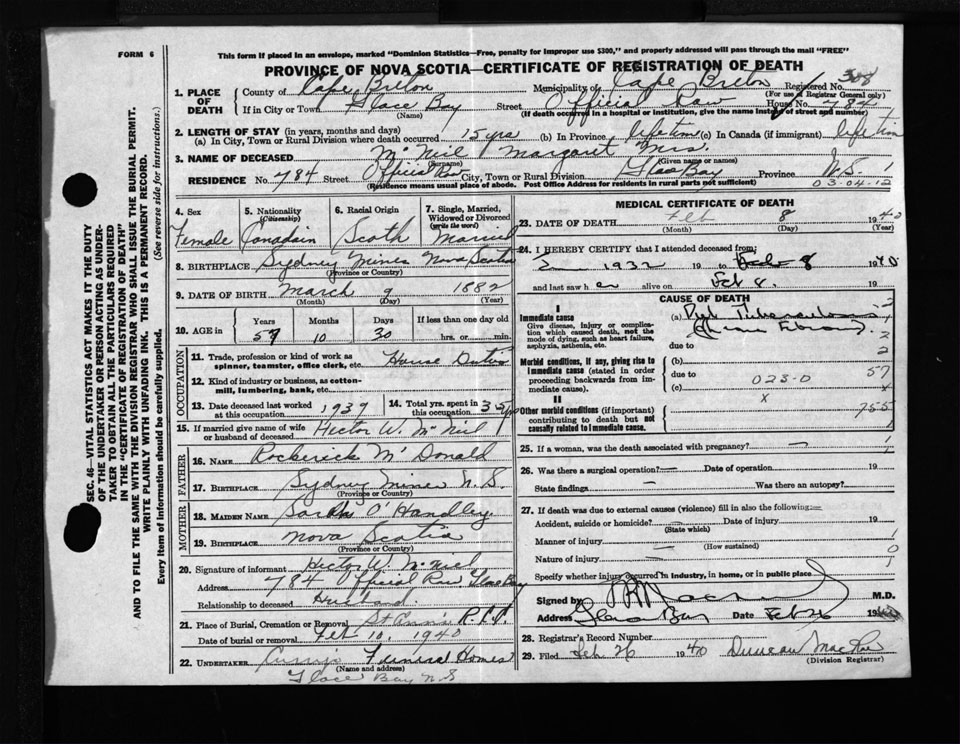 FORM 6
This form if placed in an envelope, marked "Dominion Statistics—Free, penalty for improper use $300," and properly addressed will pass through the mail "FREE"
PROVINCE OF NOVA SCOTIA—CERTIFICATE OF REGISTRATION OF DEATH
308
1. PLACE OF DEATH
County of Cape Breton Municipality of Cape Breton Registered No.
(For use of Registrar General only)
If in City or Town Glace Bay Street Official Row House No. 784
(Name) (If death occurred in a hospital or institution, give the name instead of street and number)
2. LENGTH OF STAY (in years, months and days)
(a) In City, Town or Rural Division where death occurred 15 yrs (b) In Province lifetime (c) In Canada (if immigrant) lifetime
3. NAME OF DECEASED McNeil Margaret Mrs.
(Surname) (Given name or names)
RESIDENCE No. 784 Street Official Row City, Town or Rural Division Glace Bay Province N.S. 1
(Residence means usual place of abode. Post Office Address for residents in rural parts not sufficient) 03-04-12
4. Sex
Female
5. Nationality
(Citizenship)
Canadain
6. Racial Origin
Scoth
7. Single, Married, Widowed or Divorced
(write the word)
Married
8. BIRTHPLACE Sydney Mines Nova Scotia
(Province or Country)
9. DATE OF BIRTH March 9 1882
(Month) (Day) (Year)
10. AGE in
Years Months Days If less than one day old
57 10 30 hrs. or min.
OCCUPATION
11. Trade, profession or kind of work as spinner, teamster, office clerk, etc. House Duties
12. Kind of industry or business, as cotton-mill, lumbering, bank, etc.
13. Date deceased last worked at this occupation 1939
14. Total yrs. spent in this occupation 35 yrs
15. If married give name of wife or husband of deceased Hector W. McNeil
FATHER
16. NAME Rockerick McDonald
17. BIRTHPLACE Sydney Mines N.S.
(Province or Country)
MOTHER
18. MAIDEN NAME Sarah O'Handley
19. BIRTHPLACE Nova Scotia
(Province or Country)
20. Signature of informant Hector W. McNeil
Address 784 Official Row Glace Bay
Relationship to deceased Husband
21. Place of Burial, Cremation or Removal St Ann's
Date of burial or removal Feb 10, 1940
22. UNDERTAKER Curry's Funeral Homes
(Name and address)
Glace Bay N.S
MEDICAL CERTIFICATE OF DEATH
23. DATE OF DEATH Feb 8 1940
(Month) (Day) (Year)
24. I HEREBY CERTIFY that I attended deceased from:
1932 19 to Feb 8 1940
and last saw her alive on Feb 8. 19
CAUSE OF DEATH
I
Immediate cause
Give disease, injury or complication which caused death, not the mode of dying, such as heart failure, asphyxia, asthenia, etc.
(a) Pul. Tuberculosis
due to
Morbid conditions, if any, giving rise to immediate cause (stated in order proceeding backwards from immediate cause).
(b)
due to 023-0
(c)
x
II
Other morbid conditions (if important) contributing to death but not causally related to immediate cause.
2
2
57
x
755
1
25. If a woman, was the death associated with pregnancy? —
26. Was there a surgical operation? — Date of operation 19
State findings — Was there an autopsy?
27. If death was due to external causes (violence) fill in also the following:—
Accident, suicide or homicide? — Date of injury 19
(State which)
Manner of injury —
(How sustained)
Nature of injury
Specify whether injury occurred in industry, in home, or in public place
Signed by M.D.
Address Glace Bay Date Feb 26 1940
28. Registrar's Record Number
29. Filed Feb 26 1940 Duncan MacRae
(Division Registrar)
SEC. 46—VITAL STATISTICS ACT MAKES IT THE DUTY
OF THE UNDERTAKER OR PERSON ACTING AS UNDERTAKER TO OBTAIN ALL THE PARTICULARS REQUIRED
IN THE "CERTIFICATE OF REGISTRATION OF DEATH"
AND TO FILE THE SAME WITH THE DIVISION REGISTRAR WHO SHALL ISSUE THE BURIAL PERMIT.
WRITE PLAINLY WITH UNFADING INK. THIS IS A PERMANENT RECORD.
Every item of information should be carefully supplied. (See reverse side for instructions.)